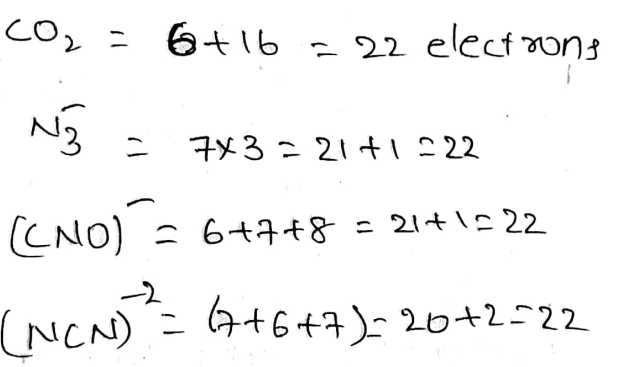 CO₂ = 6+16 = 22 electrons
N₃⁻ = 7×3 = 21+1=22
(CNO)⁻ = 6+7+8 = 21+1=22
(NCN)⁻² = (7+6+7)= 20+2=22